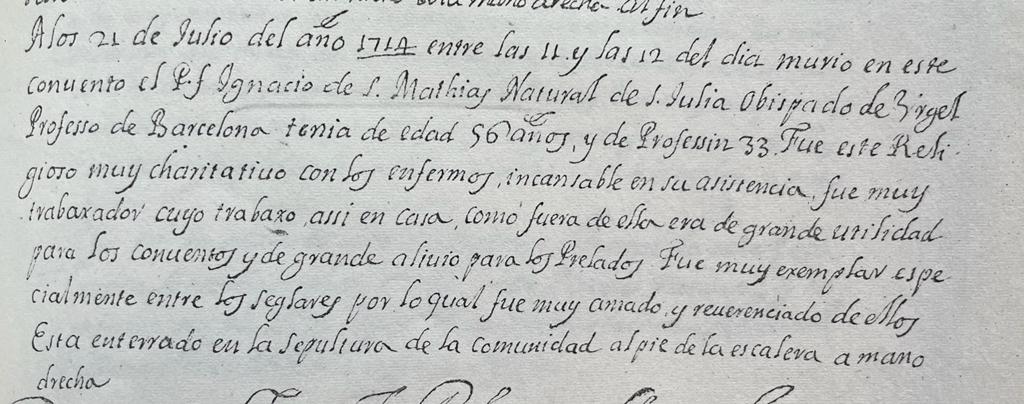 mano drecha al fin
A los 21 de Julio del año 1714 entre las 11 y las 12 del dia murio en este
convento el P. f Ignacio de S. Mathias Natural de S. Julia Obispado de Vrgel
Professo de Barcelona tenia de edad 56 años, y de Professin 33. Fue este Reli
gioso muy charitatiuo con los enfermos, incansable en su asistencia, fue muy
trabaxador cuyo trabaxo, assi en casa, como fuera de ella era de grande utilidad
para los conuentos y de grande aliuio para los Prelados Fue muy exemplar espe
cialmente entre los seglares por lo qual fue muy amado, y reuerenciado de ellos
Esta enterrado en la sepultura de la comunidad al pie de la escalera a mano
drecha